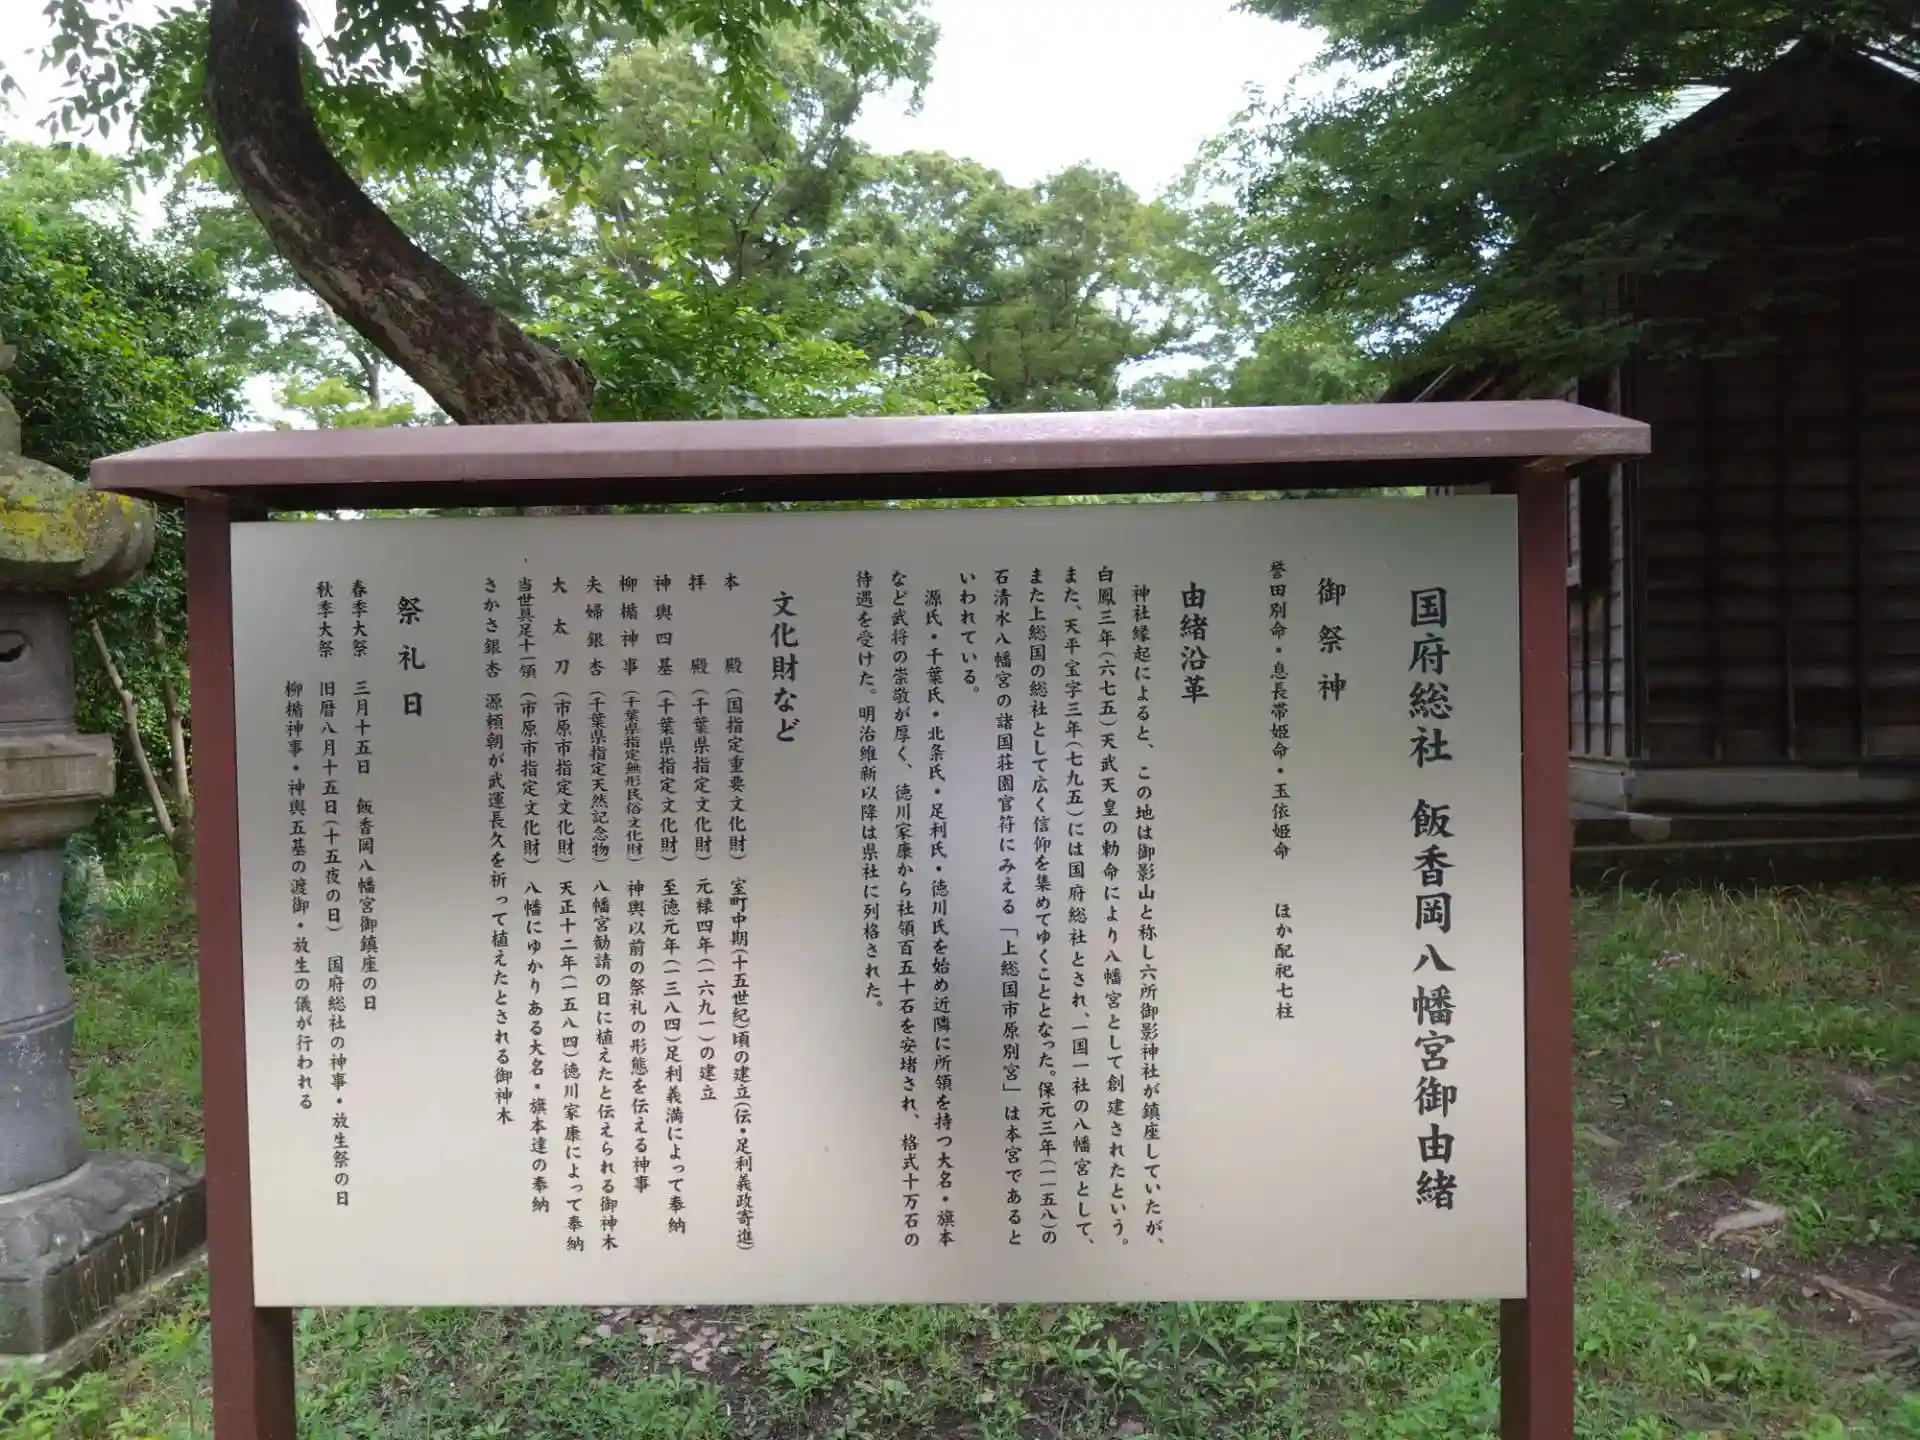 国府総社 飯香岡八幡宮御由緒
御祭神
誉田別命・息長帯姫命・玉依姫命 ほか配祀七柱
由緒沿革
神社縁起によると、この地は御影山と称し六所御影神社が鎮座していたが、
白鳳三年(六七五)天武天皇の勅命により八幡宮として創建されたという。
また、天平宝字三年(七九五)には国府総社とされ、一国一社の八幡宮として、
また上総国の総社として広く信仰を集めてゆくこととなった。保元三年(一一五八)の
石清水八幡宮の諸国荘園官符にみえる「上総国市原別宮」は本宮であると
いわれている。
源氏・千葉氏・北条氏・足利氏・徳川氏を始め近隣に所領を持つ大名・旗本
など武将の崇敬が厚く、徳川家康から社領百五十石を安堵され、格式十万石の
待遇を受けた。明治維新以降は県社に列格された。
文化財など
本殿(国指定重要文化財)室町中期(十五世紀)頃の建立(伝・足利義政寄進)
拝殿(千葉県指定文化財)元禄四年(一六九一)の建立
神輿四基(千葉県指定文化財)至徳元年(一三八四)足利義満によって奉納
柳楯神事(千葉県指定無形民俗文化財)神輿以前の祭礼の形態を伝える神事
夫婦銀杏(千葉県指定天然記念物)八幡宮勧請の日に植えたと伝えられる御神木
大太刀(市原市指定文化財)天正十二年(一五八四)徳川家康によって奉納
当世具足十一領(市原市指定文化財)八幡にゆかりある大名・旗本達の奉納
さかさ銀杏 源頼朝が武運長久を祈って植えたとされる御神木
祭礼日
春季大祭 三月十五日 飯香岡八幡宮御鎮座の日
秋季大祭 旧暦八月十五日(十五夜の日) 国府総社の神事・放生祭の日
柳楯神事・神輿五基の渡御・放生の儀が行われる